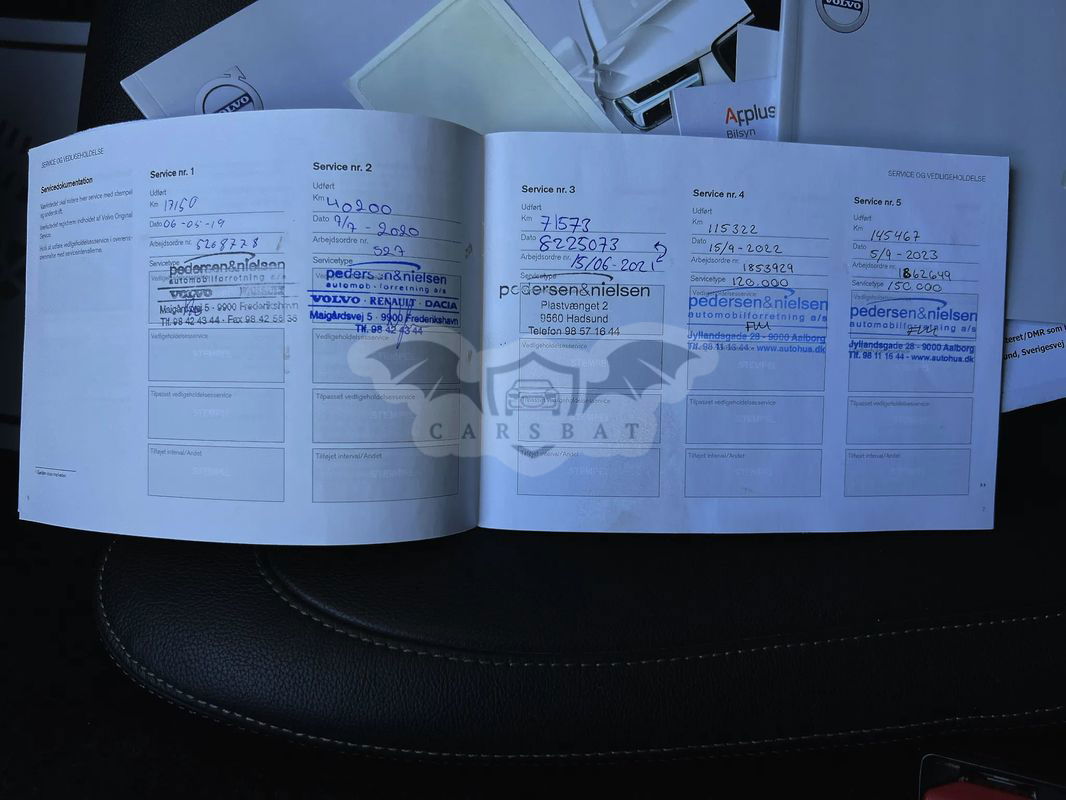 VOLVO
VOLVO
Applus
Bilsyn
SERVICE OG VEDLIGEHOLDELSE
Servicedokumentation
Service nr. 1
Udført
Km 17150
Dato 06-05-19
Arbejdsordre nr.
5268778
Servicetype
pedersen&nielsen
automobilforretning a/s
VOLVO
Maigårdsvej 5 - 9900 Frederikshavn
Tlf. 98 42 43 44 - Fax 98 42 58 36
Vedligeholdelsesservice
STEMPEL
Tilpasset vedligeholdelsesservice
STEMPEL
Tilføjet interval/Andet
STEMPEL
Service nr. 2
Udført
Km 40200
Dato 9/7-2020
Arbejdsordre nr.
527
Servicetype
pedersen&nielsen
automobilforretning a/s
VOLVO · RENAULT · DACIA
Maigårdsvej 5 · 9900 Frederikshavn
Tlf. 98 42 43 44
Vedligeholdelsesservice
Tilpasset vedligeholdelsesservice
STEMPEL
Tilføjet interval/Andet
SERVICE OG VEDLIGEHOLDELSE
Service nr. 3
Udført
Km 71573
Dato 8225073
Arbejdsordre nr. 15/06-2021
Servicetype
pedersen&nielsen
Plastvænget 2
9560 Hadsund
Telefon 98 57 16 44
Vedligeholdelsesservice
Tilpasset vedligeholdelsesservice
Tilføjet interval/Andet
STEMPEL
Service nr. 4
Udført
Km 115322
Dato 15/9-2022
Arbejdsordre nr.
1853929
Servicetype 120.000
Vedligeholdelsesservice
pedersen&nielsen
automobilforretning a/s
Jyllandsgade 28 - 9000 Aalborg
Tlf. 98 11 16 44 - www.autohus.dk
Tilpasset vedligeholdelsesservice
STEMPEL
Tilføjet interval/Andet
STEMPEL
Service nr. 5
Udført
Km 145467
Dato 5/9-2023
Arbejdsordre nr.
1862649
Servicetype 150.000
Vedligeholdelsesservice
pedersen&nielsen
automobilforretning a/s
Jyllandsgade 28 - 9000 Aalborg
Tlf. 98 11 16 44 - www.autohus.dk
Tilpasset vedligeholdelsesservice
STEMPEL
Tilføjet interval/Andet
7
CARSBAT